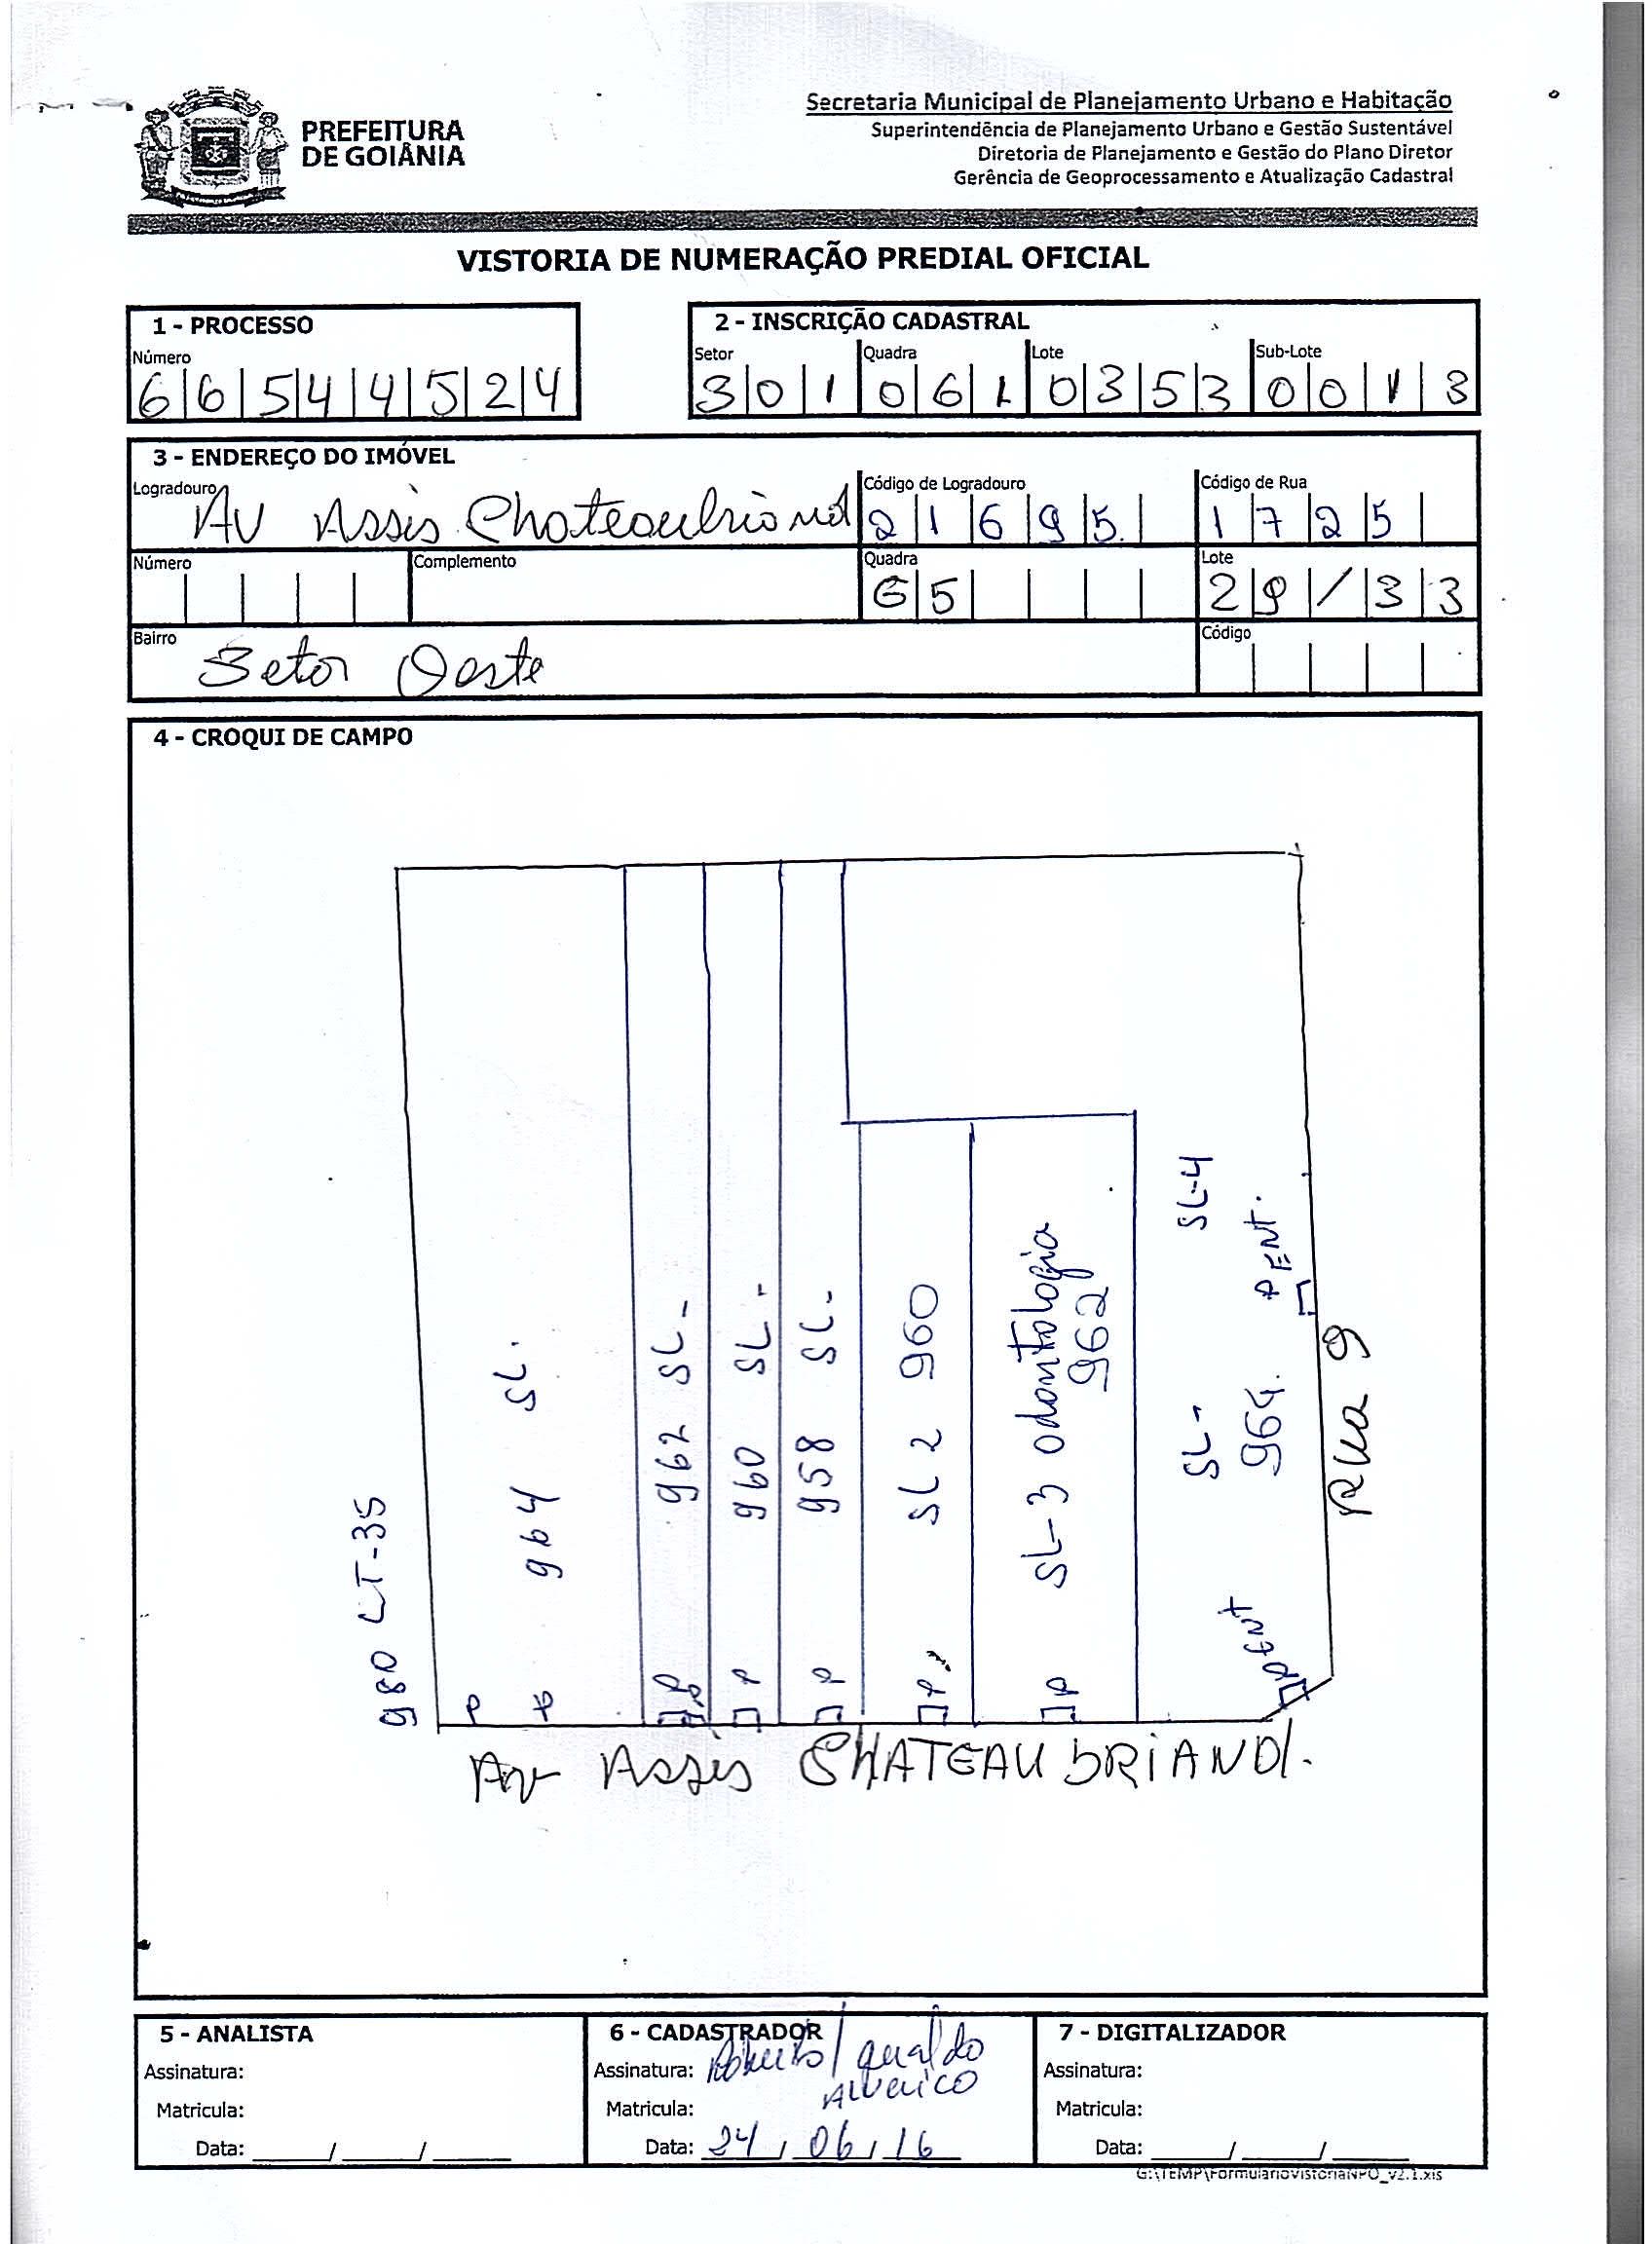 PREFEITURA
DE GOIÂNIA
Secretaria Municipal de Planejamento Urbano e Habitação
Superintendência de Planejamento Urbano e Gestão Sustentável
Diretoria de Planejamento e Gestão do Plano Diretor
Gerência de Geoprocessamento e Atualização Cadastral
VISTORIA DE NUMERAÇÃO PREDIAL OFICIAL
1 - PROCESSO
Número
6 6 5 4 4 5 2 4
2 - INSCRIÇÃO CADASTRAL
Setor Quadra Lote Sub-Lote
3 0 1 0 6 1 0 3 5 3 0 0 1 3
3 - ENDEREÇO DO IMÓVEL
Logradouro Código de Logradouro Código de Rua
AV Assis Chateaubriand 2 1 6 9 5 1 7 2 5
Número Complemento Quadra Lote
G 5 29 / 3 3
Bairro Código
Setor Oeste
4 - CROQUI DE CAMPO
980 LT-35
964 SL.
P P
962 SL-
P
960 SL-
P
958 SL-
P
SL 2 960
P
SL-3 odontologia
962
P
SL-4
SL-
964.
P ENT.
P ENT
Rua 9
Av Assis CHATEAUBRIAND.
5 - ANALISTA
Assinatura:
Matricula:
Data: / /
6 - CADASTRADOR
Assinatura: Roberto /
Matricula:
Data: 24 / 06 / 16
7 - DIGITALIZADOR
Assinatura:
Matricula:
Data: / /
G:\TEMP\FormularioVistoriaNPO_v2.1.xls